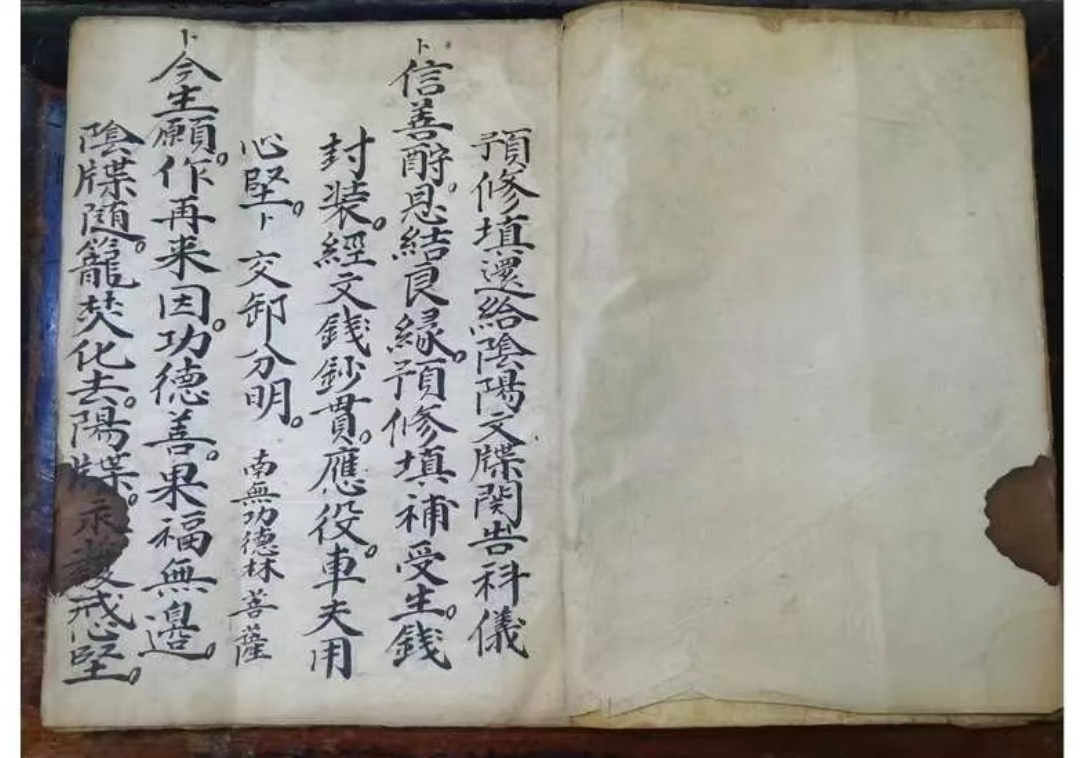 預修填還給陰陽文牒関告科儀
卜信善酧。恩結良緣。預修填補受生。錢
封装。經文錢鈔貫。應役。車夫用
心堅。卜 交卸分明。 南無功德林菩薩
卜今生願。作再来因。功德善。果福無邊。
陰牒随。籠焚化去。陽牒。永戒心堅。